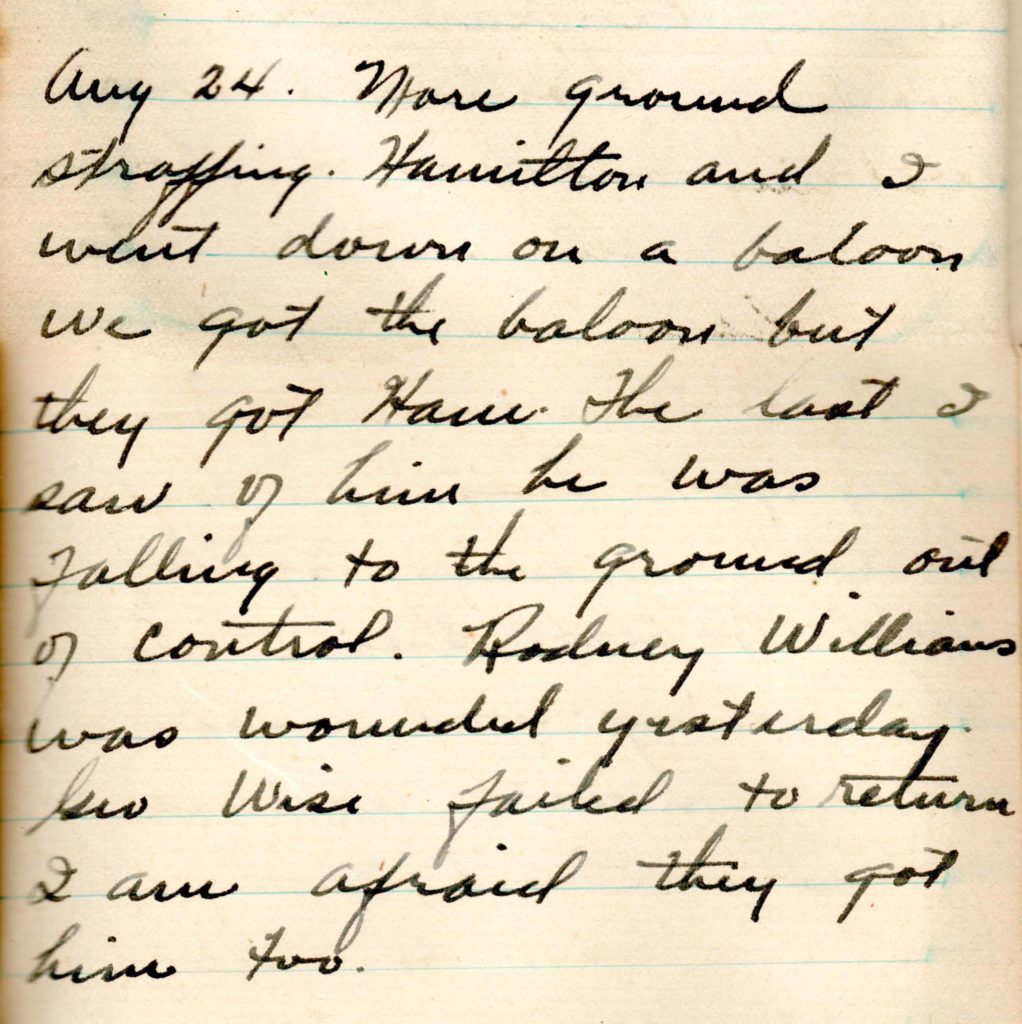 Aug 24. More ground
straffing. Hamilton and I
went down on a baloon
we got the baloon but
they got Ham. The last I
saw of him he was
falling to the ground out
of control. Rodney Williams
was wounded yesterday.
Geo Wise failed to return
I am afraid they got
him too.